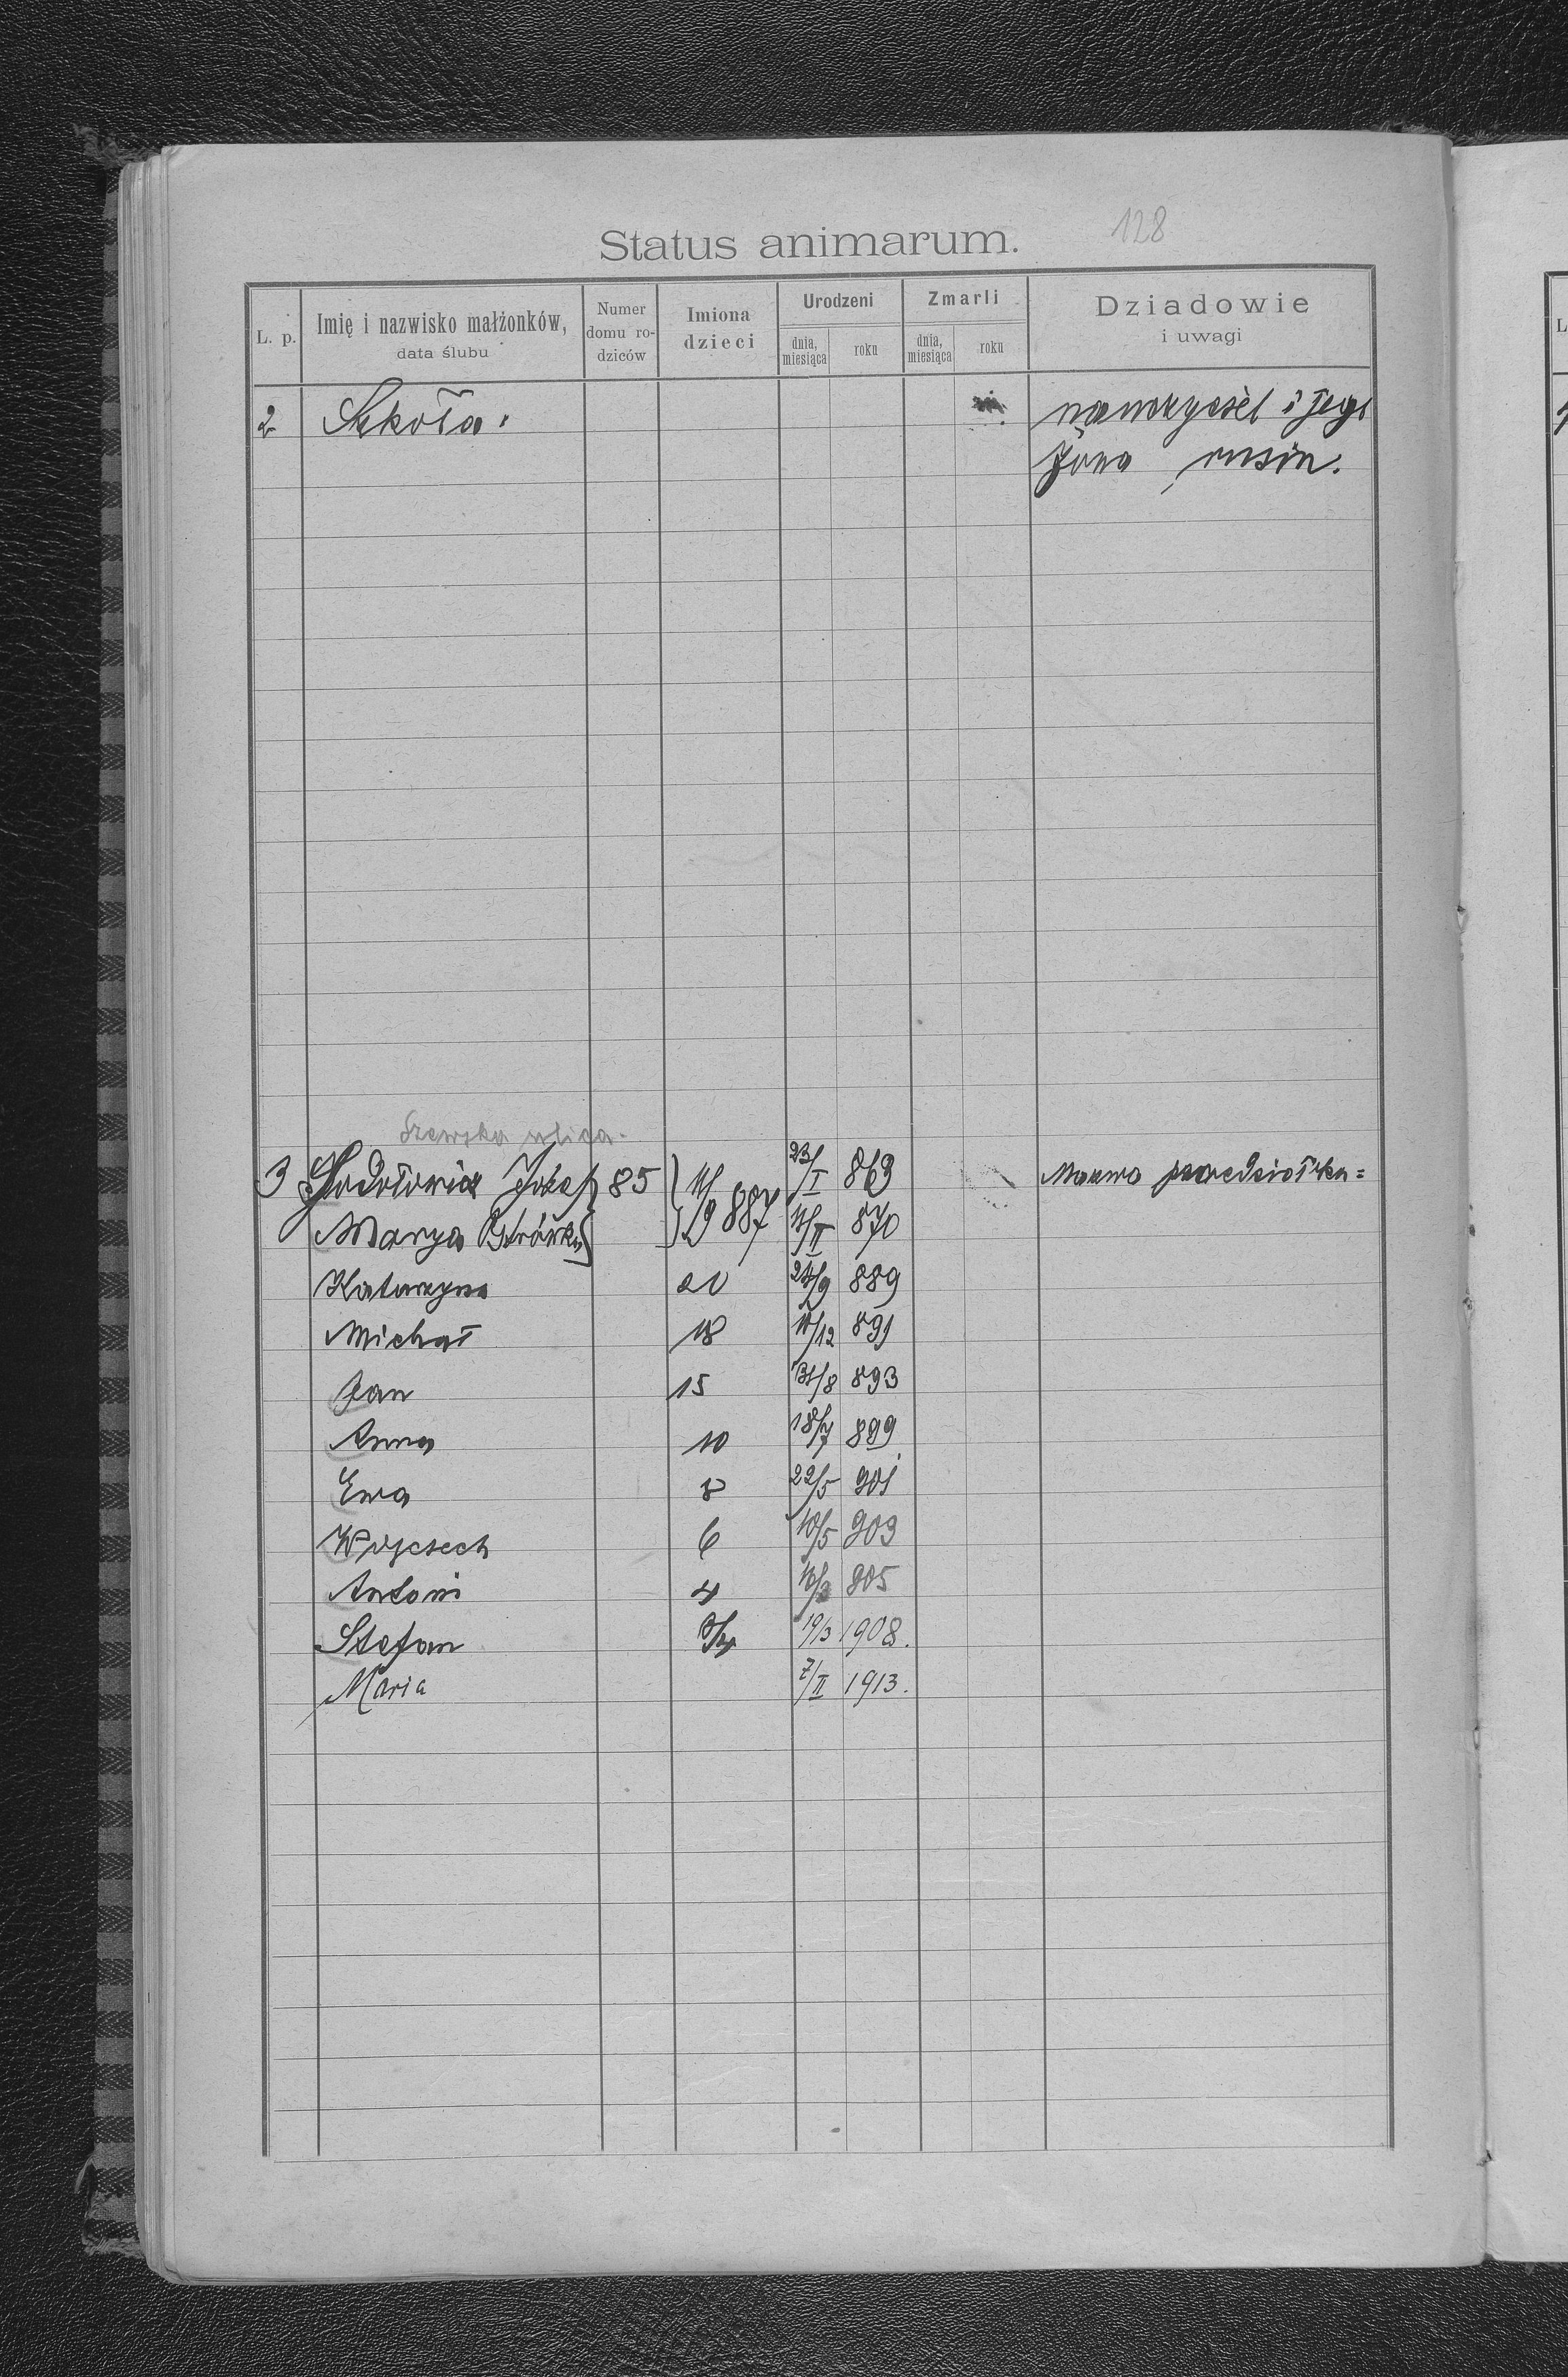 128
Status animarum.
L. p. Imię i nazwisko małżonków, data ślubu Numer domu ro-dziców Imiona dzieci Urodzeni dnia, miesiąca roku Zmarli dnia, miesiąca roku Dziadowie i uwagi
2 Szkoła. nauczyciel i jego
żona rusin.
Szewska ulica.
3 Józef 85 23/I 869
Marya 9 887 870
Katarzyna 20 24/9 889
Michał 18 /12 891
Jan 15 31/8 893
Anna 10 18/7 899
Ewa 8 22/5 901
Wojciech 6 10/5 903
Antoni 4 905
Stefan 3/4 19/3 1908.
Maria 7/II 1913.
L